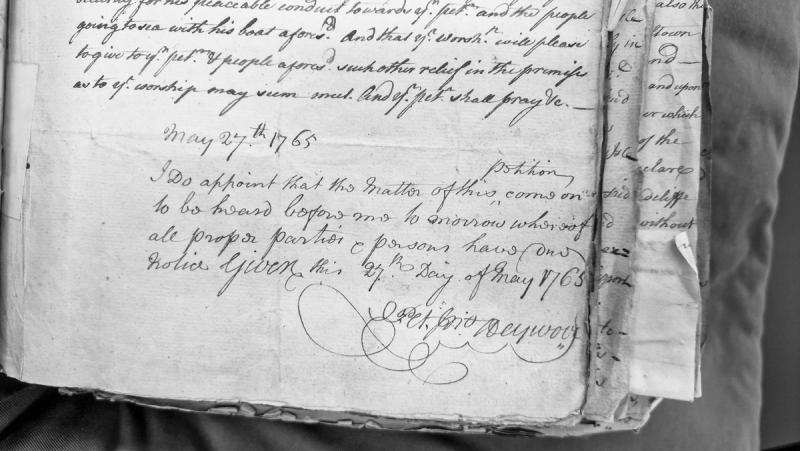 for his peaceable conduct towards yr. petr. and the people
going to sea with his boat afores'd. And that yr. worshp. will please
to give to yr. petr. & people afores'd. such other relief in the premises
as to yr. worship may seem meet. And yr. petr. shall pray &c.
May 27th. 1765
petition
I Do appoint that the Matter of this, come on
to be heard before me to morrow whereof
all proper parties & persons have due
Notice Given this 27th. Day of May 1765
Heywood
also the
Town
and upon
or which
of the
without